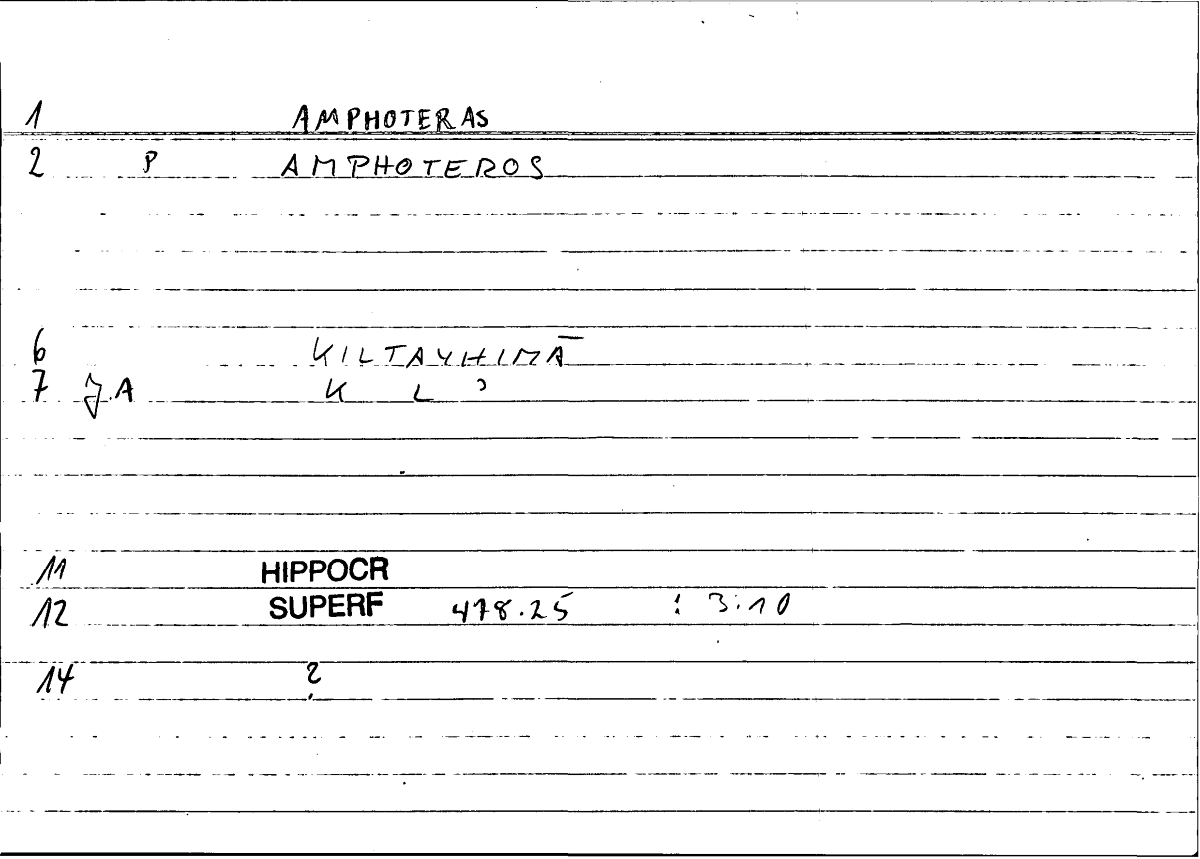 1 AMPHOTERAS
2 P AMPHOTEROS
6 KILTAYHIMĀ
7 J.A K L ʾ
11 HIPPOCR
12 SUPERF 478.25 : 3:10
14 ?